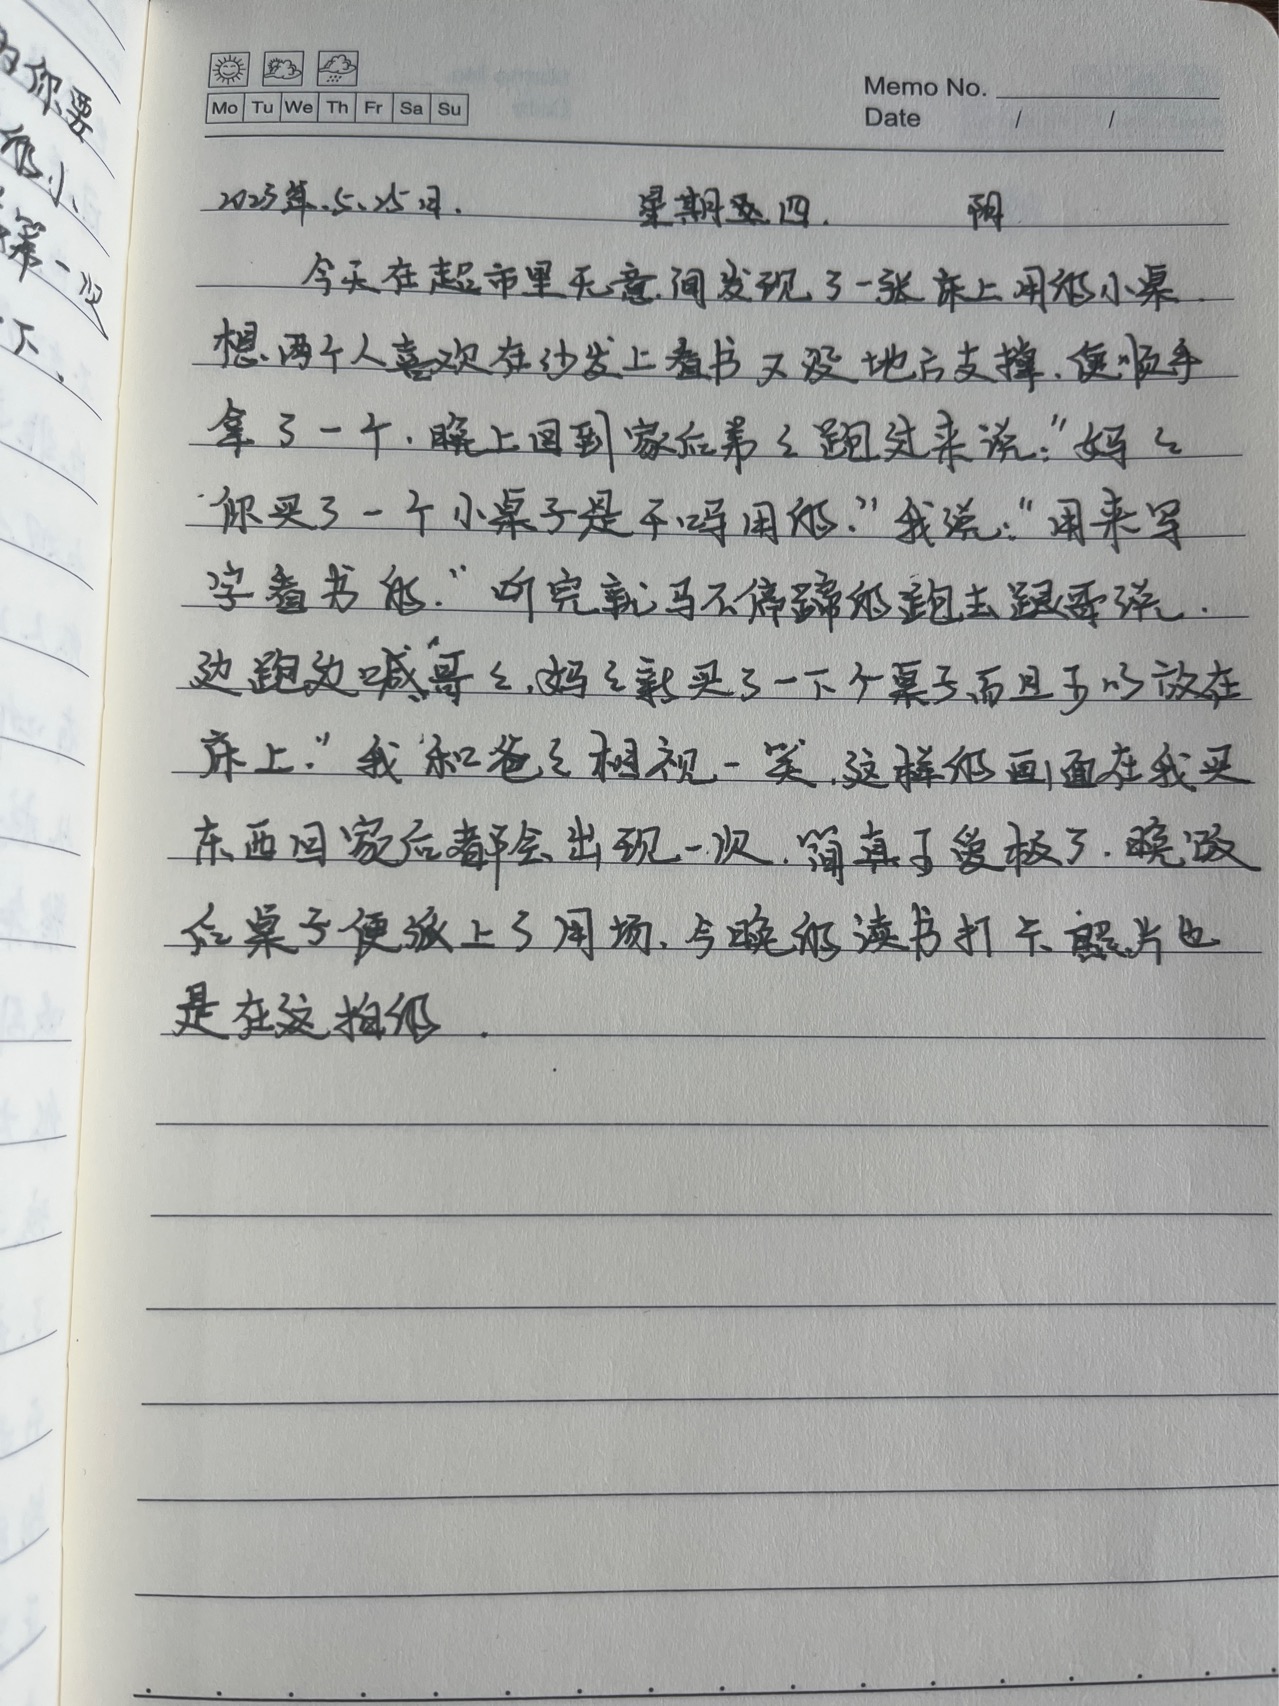 Mo Tu We Th Fr Sa Su
Memo No.
Date / /
2023年.5.25日. 星期四. 阴
今天在超市里无意间发现了一张床上用的小桌
想两个人喜欢在沙发上看书又没地方支撑.便顺手
拿了一个.晚上回到家后弟弟跑过来说:"妈妈
你买了一个小桌子是干吗用的."我说:"用来写
字看书的."听完就马不停蹄的跑去跟哥说.
边跑边喊"哥哥.妈妈新买了一下个桌子而且可以放在
床上."我和爸爸相视一笑.这样的画面在我买
东西回家后都会出现一次.简直可爱极了.晚饭
后桌子便派上了用场.今晚的读书打卡照片也
是在这拍的.
你要
的小
第一次
下、